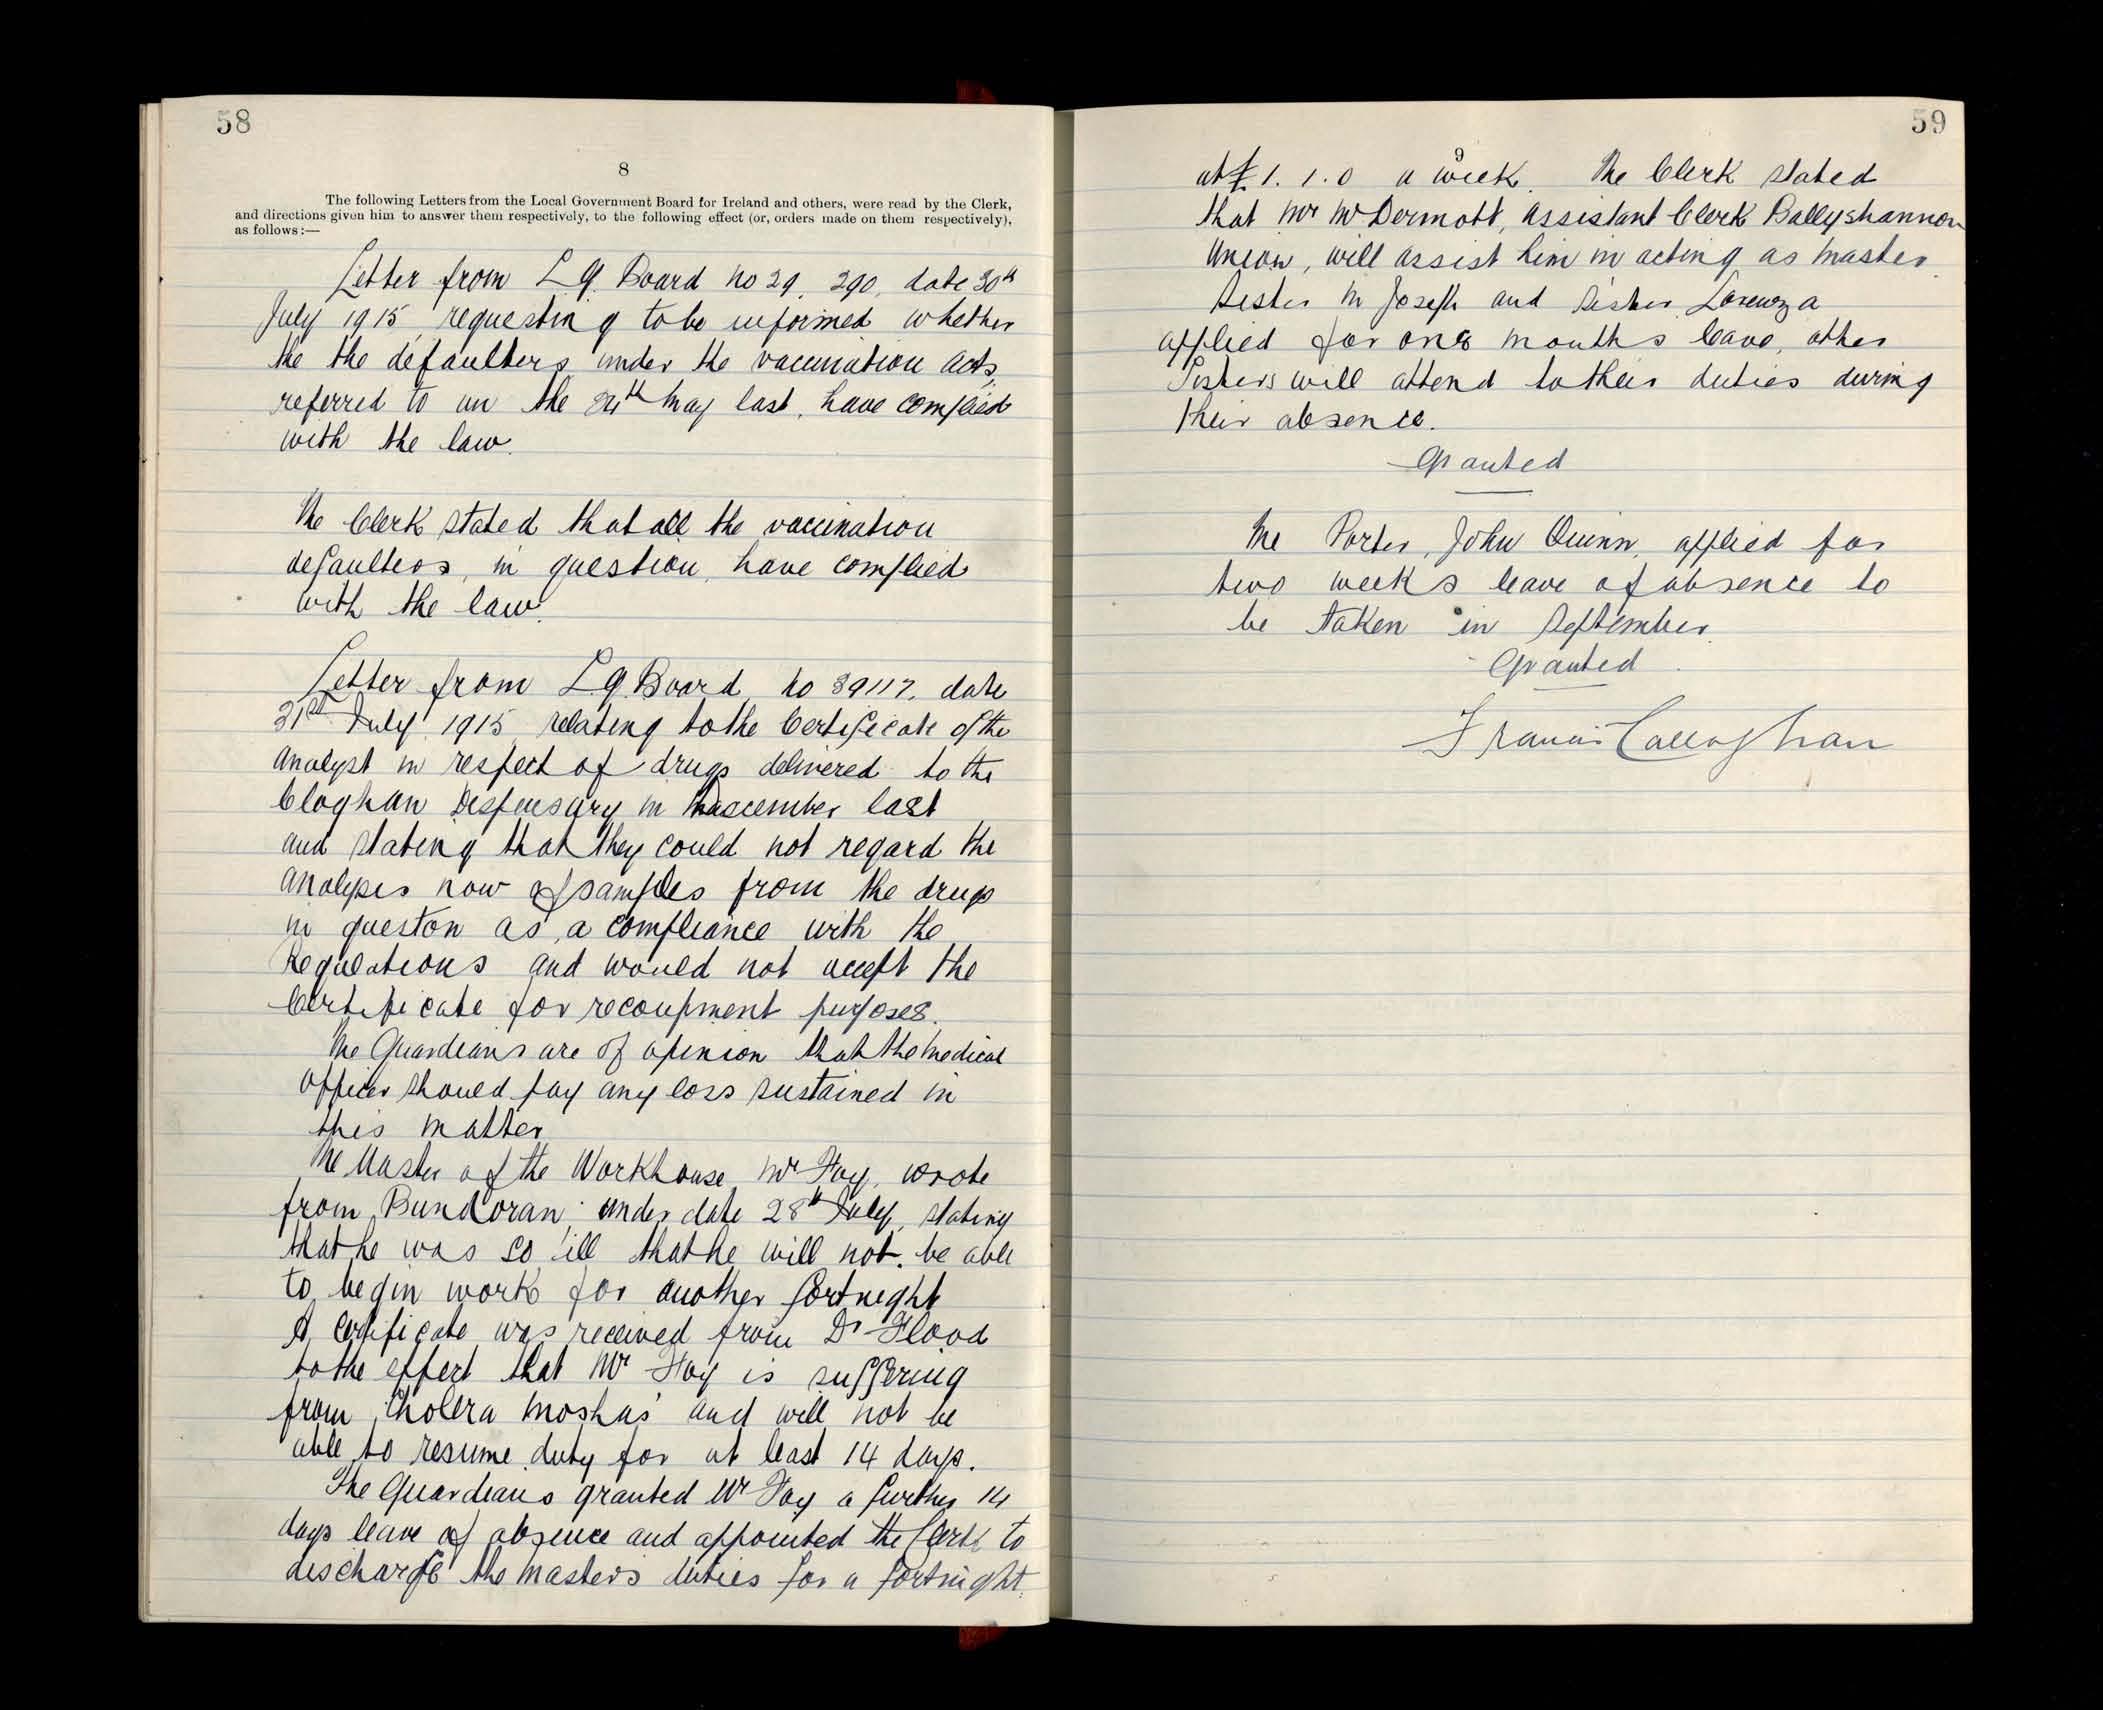 58
8
The following Letters from the Local Government Board for Ireland and others, were read by the Clerk,
and directions given him to answer them respectively, to the following effect (or, orders made on them respectively),
as follows:—
Letter from L G. Board no 29. 290, date 30th
July 1915 requesting to be informed whether
the the defaulters under the vaccination acts,
referred to un the 24th May last, have complied
with the law.
The Clerk stated that all the vaccination
defaulters, in question, have complied
with the law.
Letter from L.G. Board no 39117, date
31st July 1915 relating to the Certificate of the
analyst in respect of drugs delivered to the
Cloghan Dispensary in last
and stating that they could not regard the
analysis now of samples from the drugs
in queston as a compliance with the
Regulations and would not accept the
Certificate for recoupment purposes.
The Guardians are of opinion that the medical
officer should pay any loss sustained in
this matter
The Master of the Workhouse Mr Foy, wrote
from Bundoran, under date 28th July, stating
that he was so ill that he will not. be able
to begin work for another fortnight
A certificate was received from Dr Flood
to the effect that Mr Foy is suffering
from Cholera Moshas and will not be
able to resume duty for at least 14 days.
The Guardians granted Mr Foy a further 14
days leave of absence and appointed the Clerk to
discharge the masters duties for a fortnight.
59
9
at £1. 1. 0 a week. The Clerk stated
that Mr McDermott, assistant Clerk Ballyshannon
Union, will assist him in acting as master.
Sister M Joseph and Sister Lorenza
applied for one months leave, other
Sisters will attend to their duties during
their absence.
Granted
The Porter, John Quinn, applied for
two weeks leave of absence to
be taken in September.
Granted
Francis Callaghan